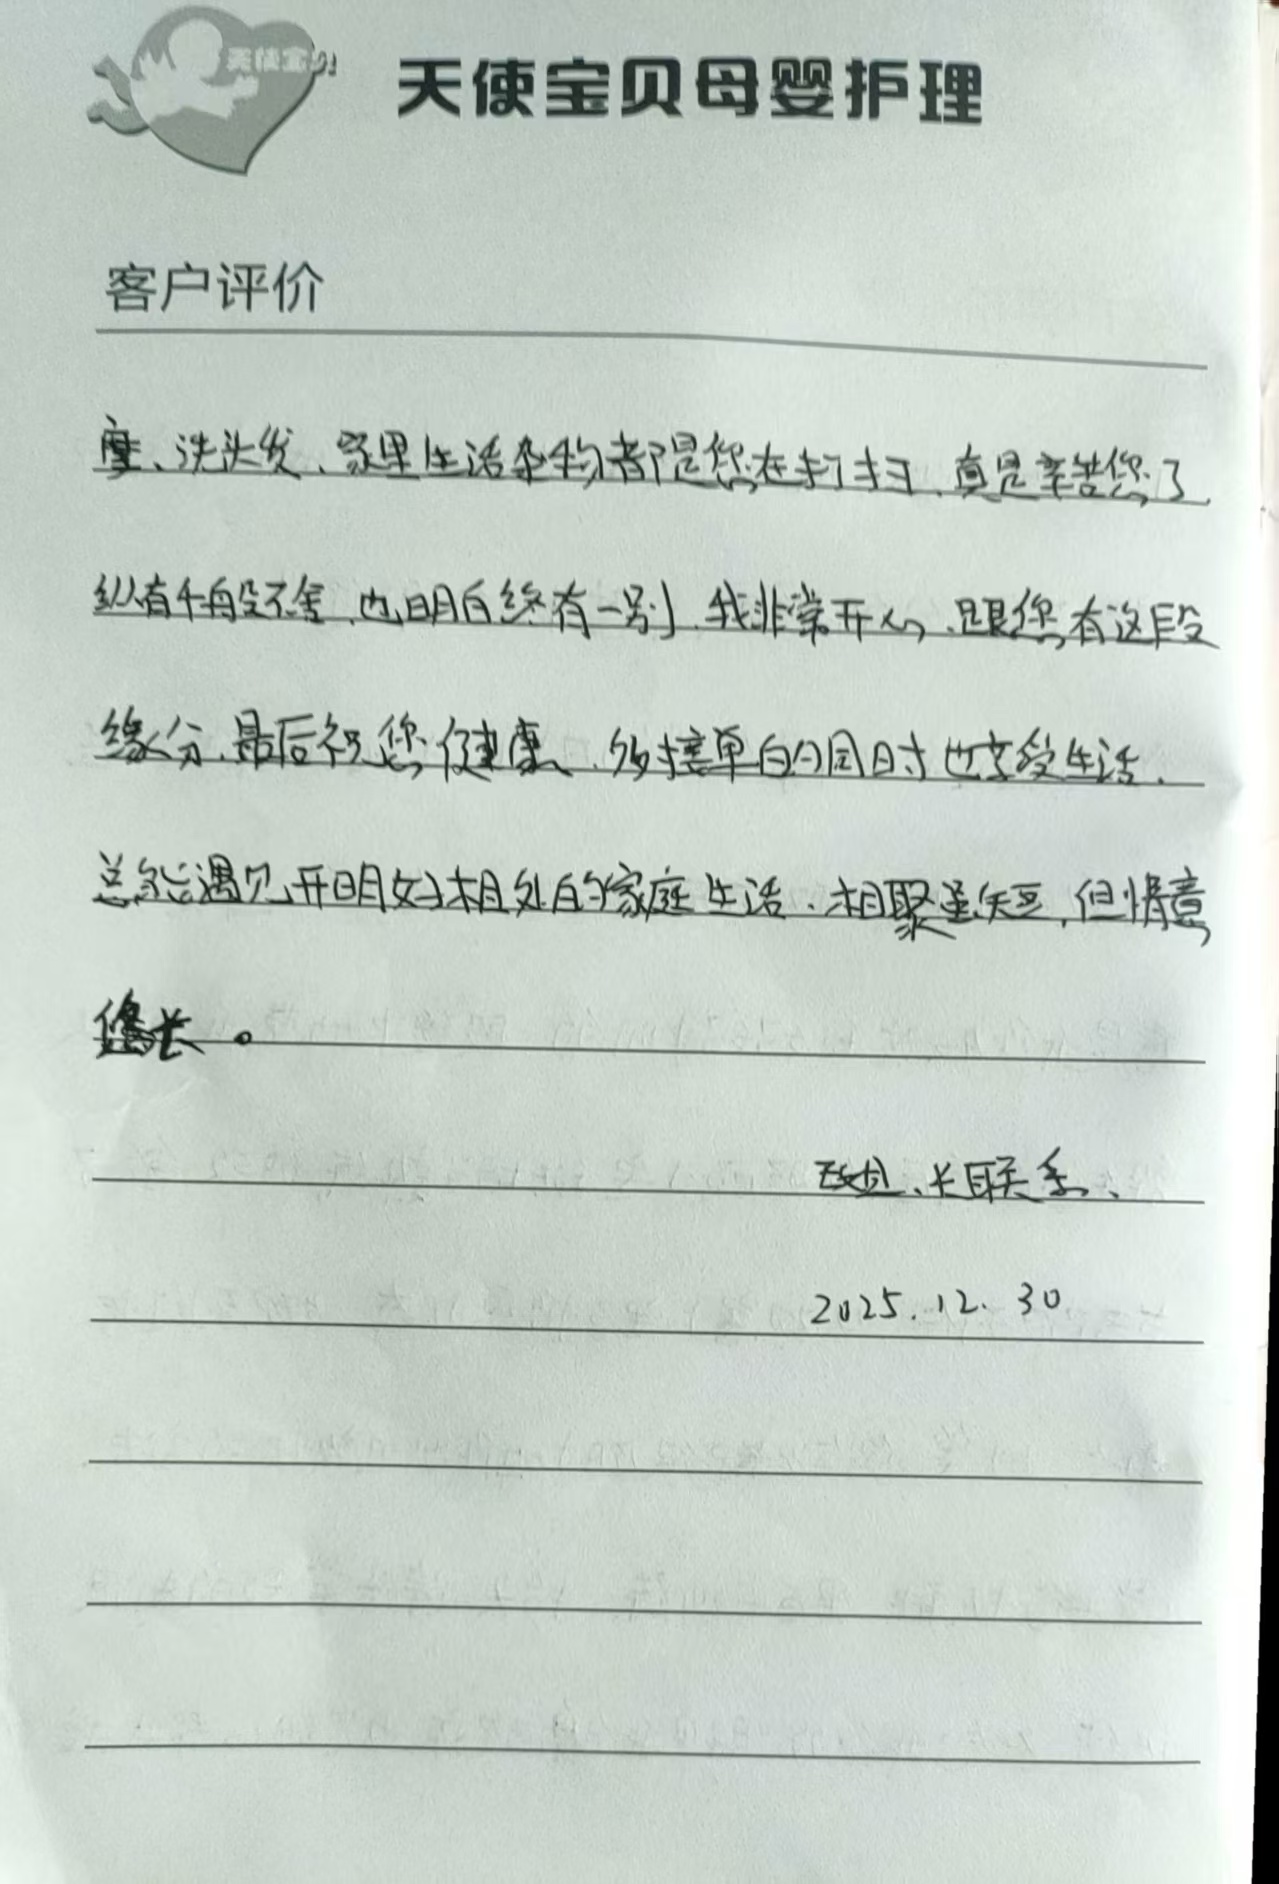 天使宝贝
天使宝贝母婴护理
客户评价
摩、洗头发、家里生活杂物都是您在打扫、真是辛苦您了
纵有千般不舍、也明白终有一别、我非常开心、跟您有这段
缘分、最后祝您健康、多接单的同时也享受生活、
总能遇见开明好相处的家庭生活、相聚虽短、但情意
悠长。
姐、长联系、
2025.12.30